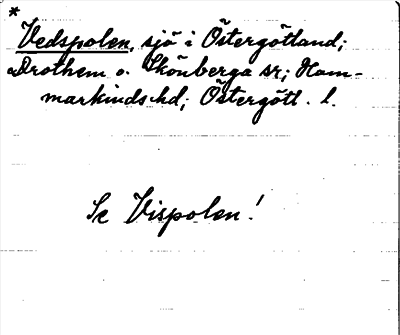 *
Vedspolen, sjö i Östergötland;
Drothem o. Skönberga sr; Ham-
markinds hd; Östergötl. l.
Se Vispolen!